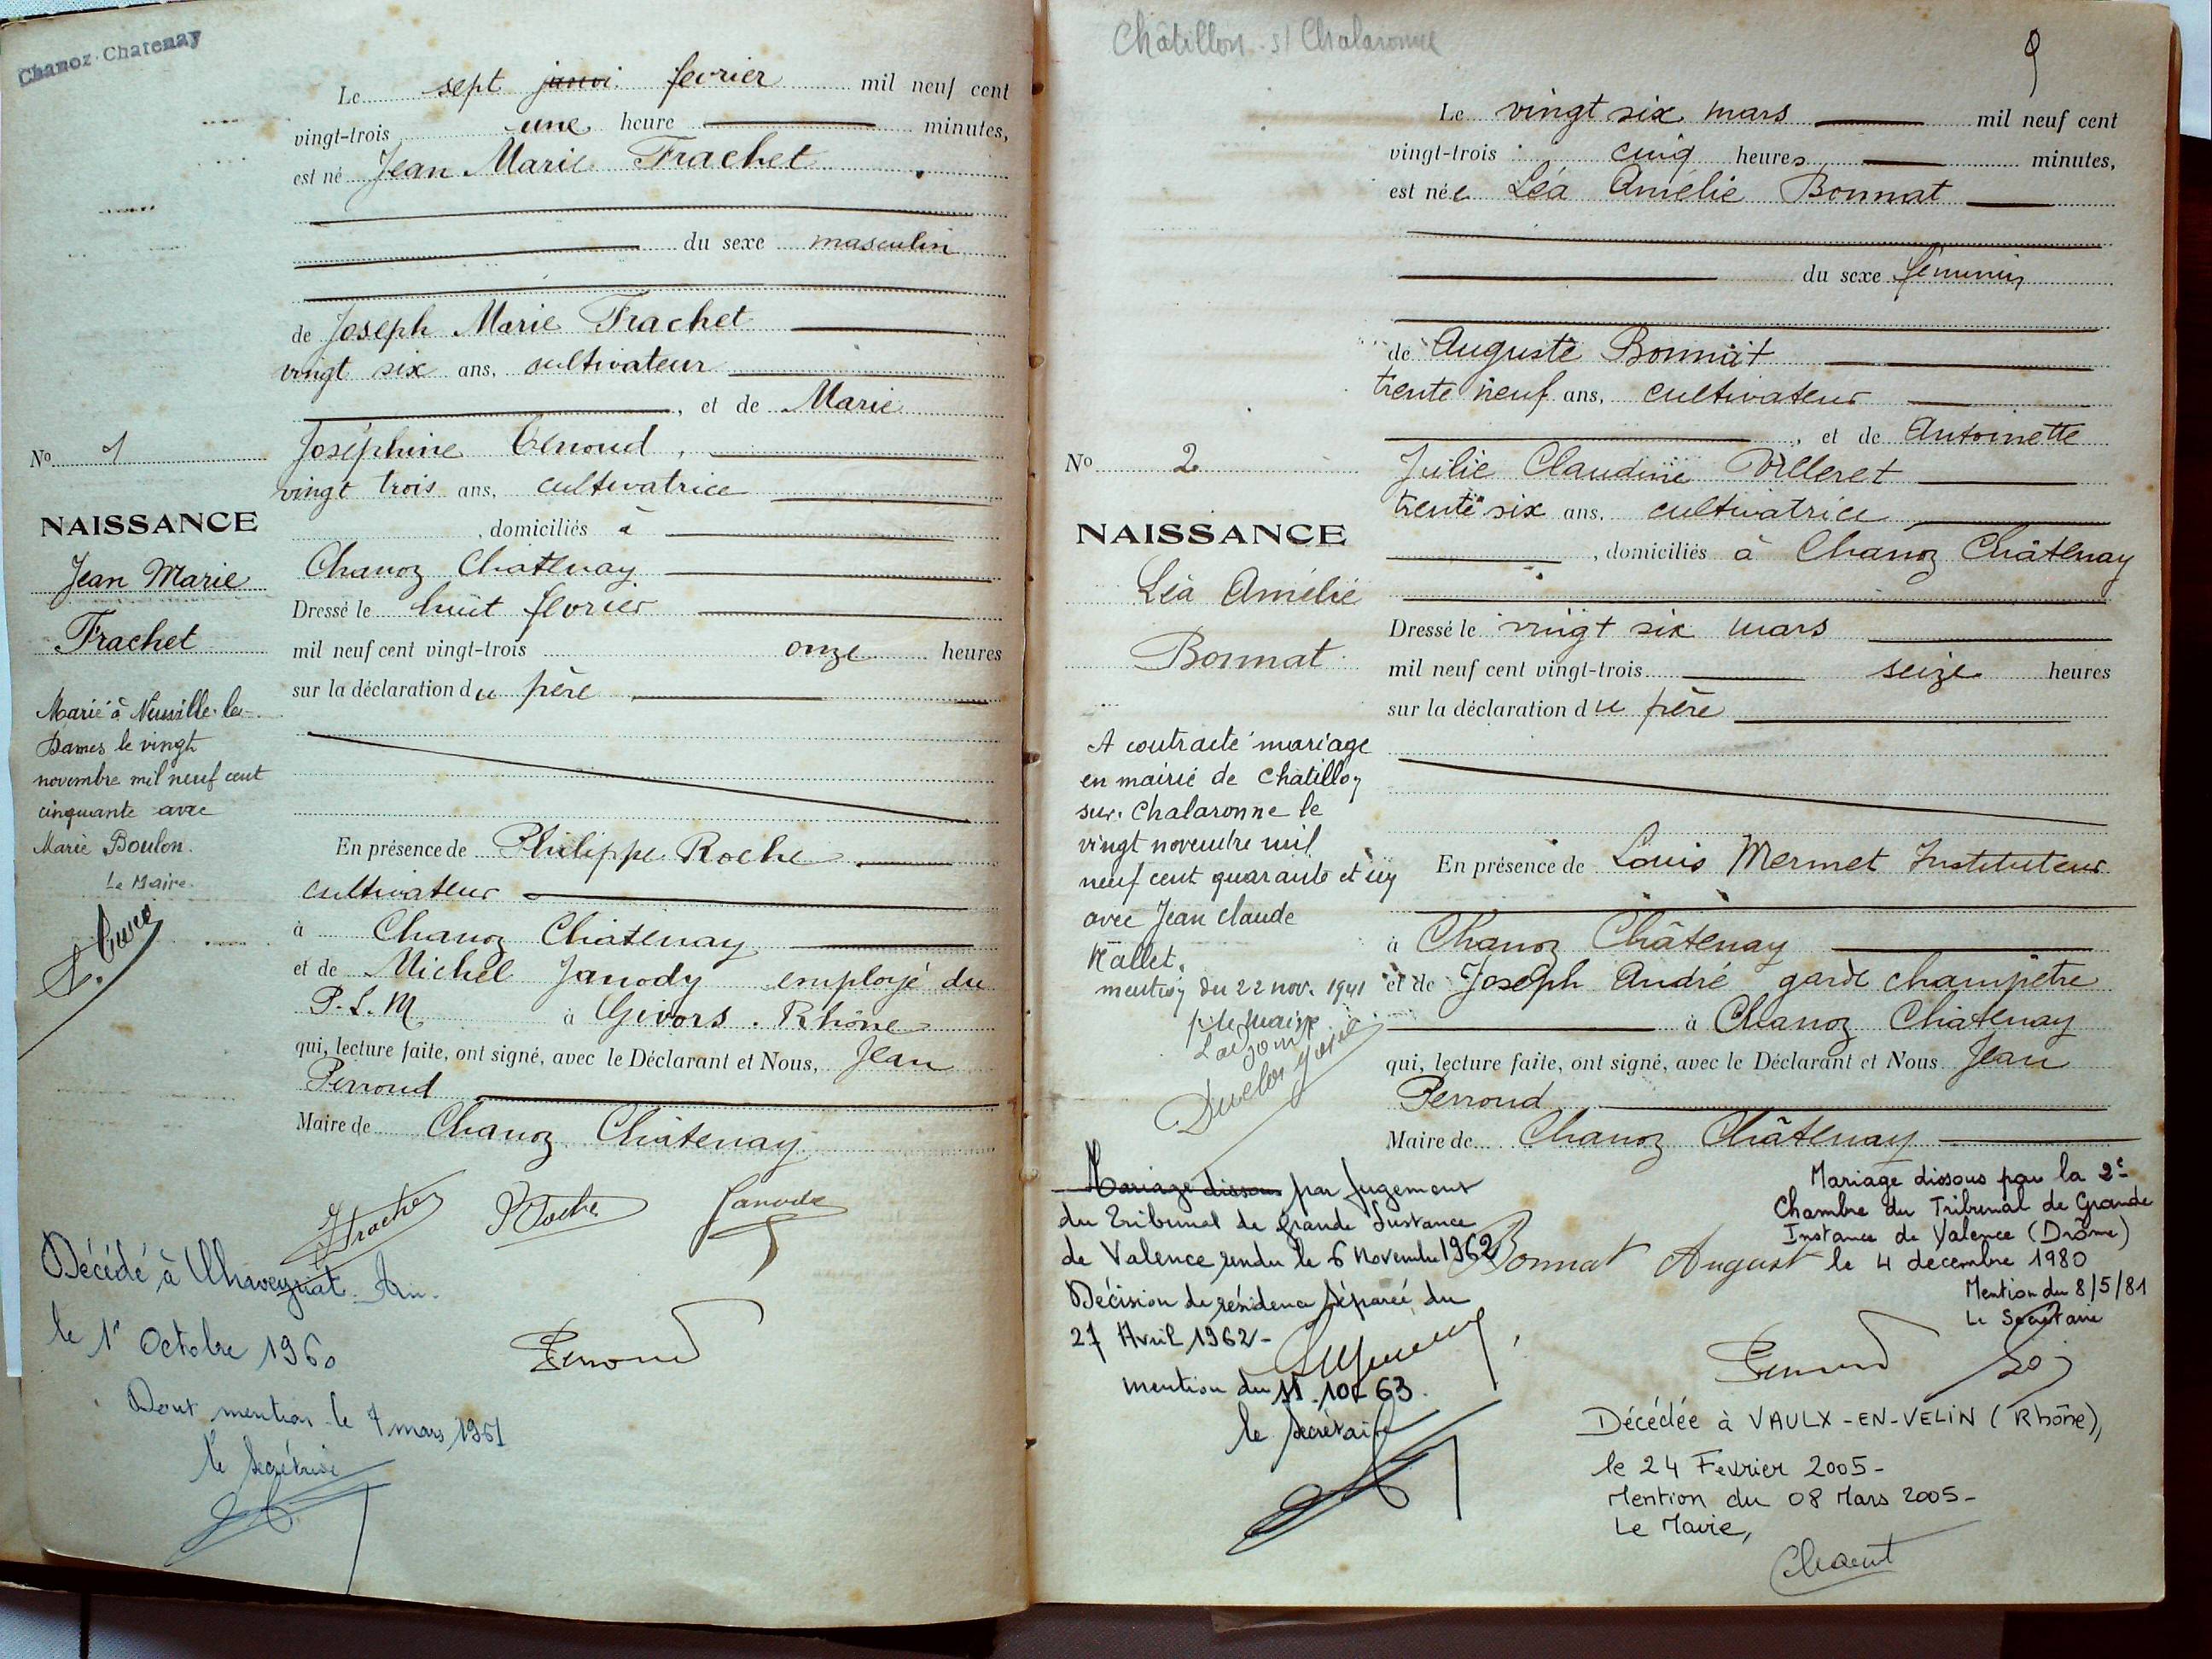 Chanoz-Chatenay
Le sept janvi. fevrier mil neuf cent
vingt-trois une heure minutes,
est né Jean Marie Frachet
du sexe masculin
de Joseph Marie Frachet
vingt six ans, cultivateur
, et de Marie
Joséphine
vingt trois ans, cultivatrice
, domiciliés à
Chanoz Châtenay
Dressé le huit fevrier
mil neuf cent vingt-trois onze heures
sur la déclaration du père
En présence de Philippe Roche
cultivateur
à Chanoz Châtenay
et de Michel Janody employé du
P.L.M. à Givors. Rhône
qui, lecture faite, ont signé, avec le Déclarant et Nous, Jean
Perroud
Maire de Chanoz Châtenay
No 1
NAISSANCE
Jean Marie
Frachet
Marié à Neuville-les-
Dames le vingt
novembre mil neuf cent
cinquante avec
Marie Boulon.
Le Maire.
Frachet PRoche Janody
Perroud
Décédé à Chaveyriat. Ain.
le 1er Octobre 1960
Dont mention le 7 mars 1961
le Secrétaire
Châtillon s/ Chalaronne
9
Le vingt six mars mil neuf cent
vingt-trois cinq heures minutes,
est née Léa Amélie Bonnat
du sexe féminin
de Auguste Bonnat
trente neuf ans, cultivateur
, et de Antoinette
Julie Claudine Villeret
trente six ans, cultivatrice
, domiciliés à Chanoz Châtenay
Dressé le vingt six mars
mil neuf cent vingt-trois seize heures
sur la déclaration du père
En présence de Louis Mermet Instituteur
à Chanoz Châtenay
et de Joseph André garde champêtre
à Chanoz Châtenay
qui, lecture faite, ont signé, avec le Déclarant et Nous Jean
Perroud
Maire de Chanoz Châtenay
No 2
NAISSANCE
Léa Amélie
Bonnat
A contracté mariage
en mairie de Châtillon
sur. Chalaronne le
vingt novembre mil
neuf cent quarante et un
avec Jean Claude
Mallet.
mention du 22 nov. 1941
p. le Maire
L'adjoint
Mariage dissous par Jugement
du Tribunal de Grande Instance
de Valence rendu le 6 Novembre 1962
Décision de résidence séparée du
27 Avril 1962-
mention du 11.10.63.
le Secrétaire
Bonnat August
Mariage dissous par la 2e
Chambre du Tribunal de Grande
Instance de Valence (Drôme)
le 4 decembre 1980
Mention du 8/5/81
Le Secrétaire
Perroud
Décédée à VAULX-EN-VELIN (Rhône),
le 24 Fevrier 2005-
Mention du 08 Mars 2005-
Le Maire,